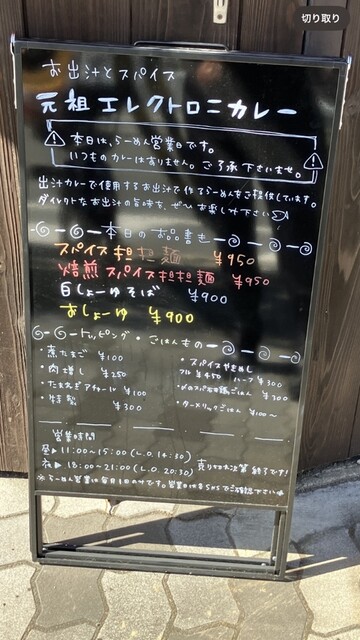 切り取り
お出汁とスパイス
元祖エレクトロニカレー
本日は、らーめん営業日です。
いつものカレーはありません。ご了承下さいませ。
出汁カレーで使用するお出汁で作るらーめんをご提供しています。
ダイレクトなお出汁の旨味を、ぜひお楽しみ下さい
本日のお品書き
スパイス担担麺 ¥950
焙煎スパイス担担麺 ¥950
白しょーゆそば ¥900
おしょーゆ ¥900
トッピング・ごはんもの
・煮たまご ¥100
・肉増し ¥250
・たまねぎアチャール ¥100
・特製 ¥300
・スパイスやきめし
フル ¥450 ハーフ ¥300
ご飯 ¥300
・ターメリックごはん ¥100〜
営業時間
昼▶11:00〜15:00 (L.O. 14:30)
夜▶18:00〜21:00 (L.O. 20:30) 売り切れ次第終了です!
※らーめん営業は毎月10のみです。営業日は各SNSでご確認下さい